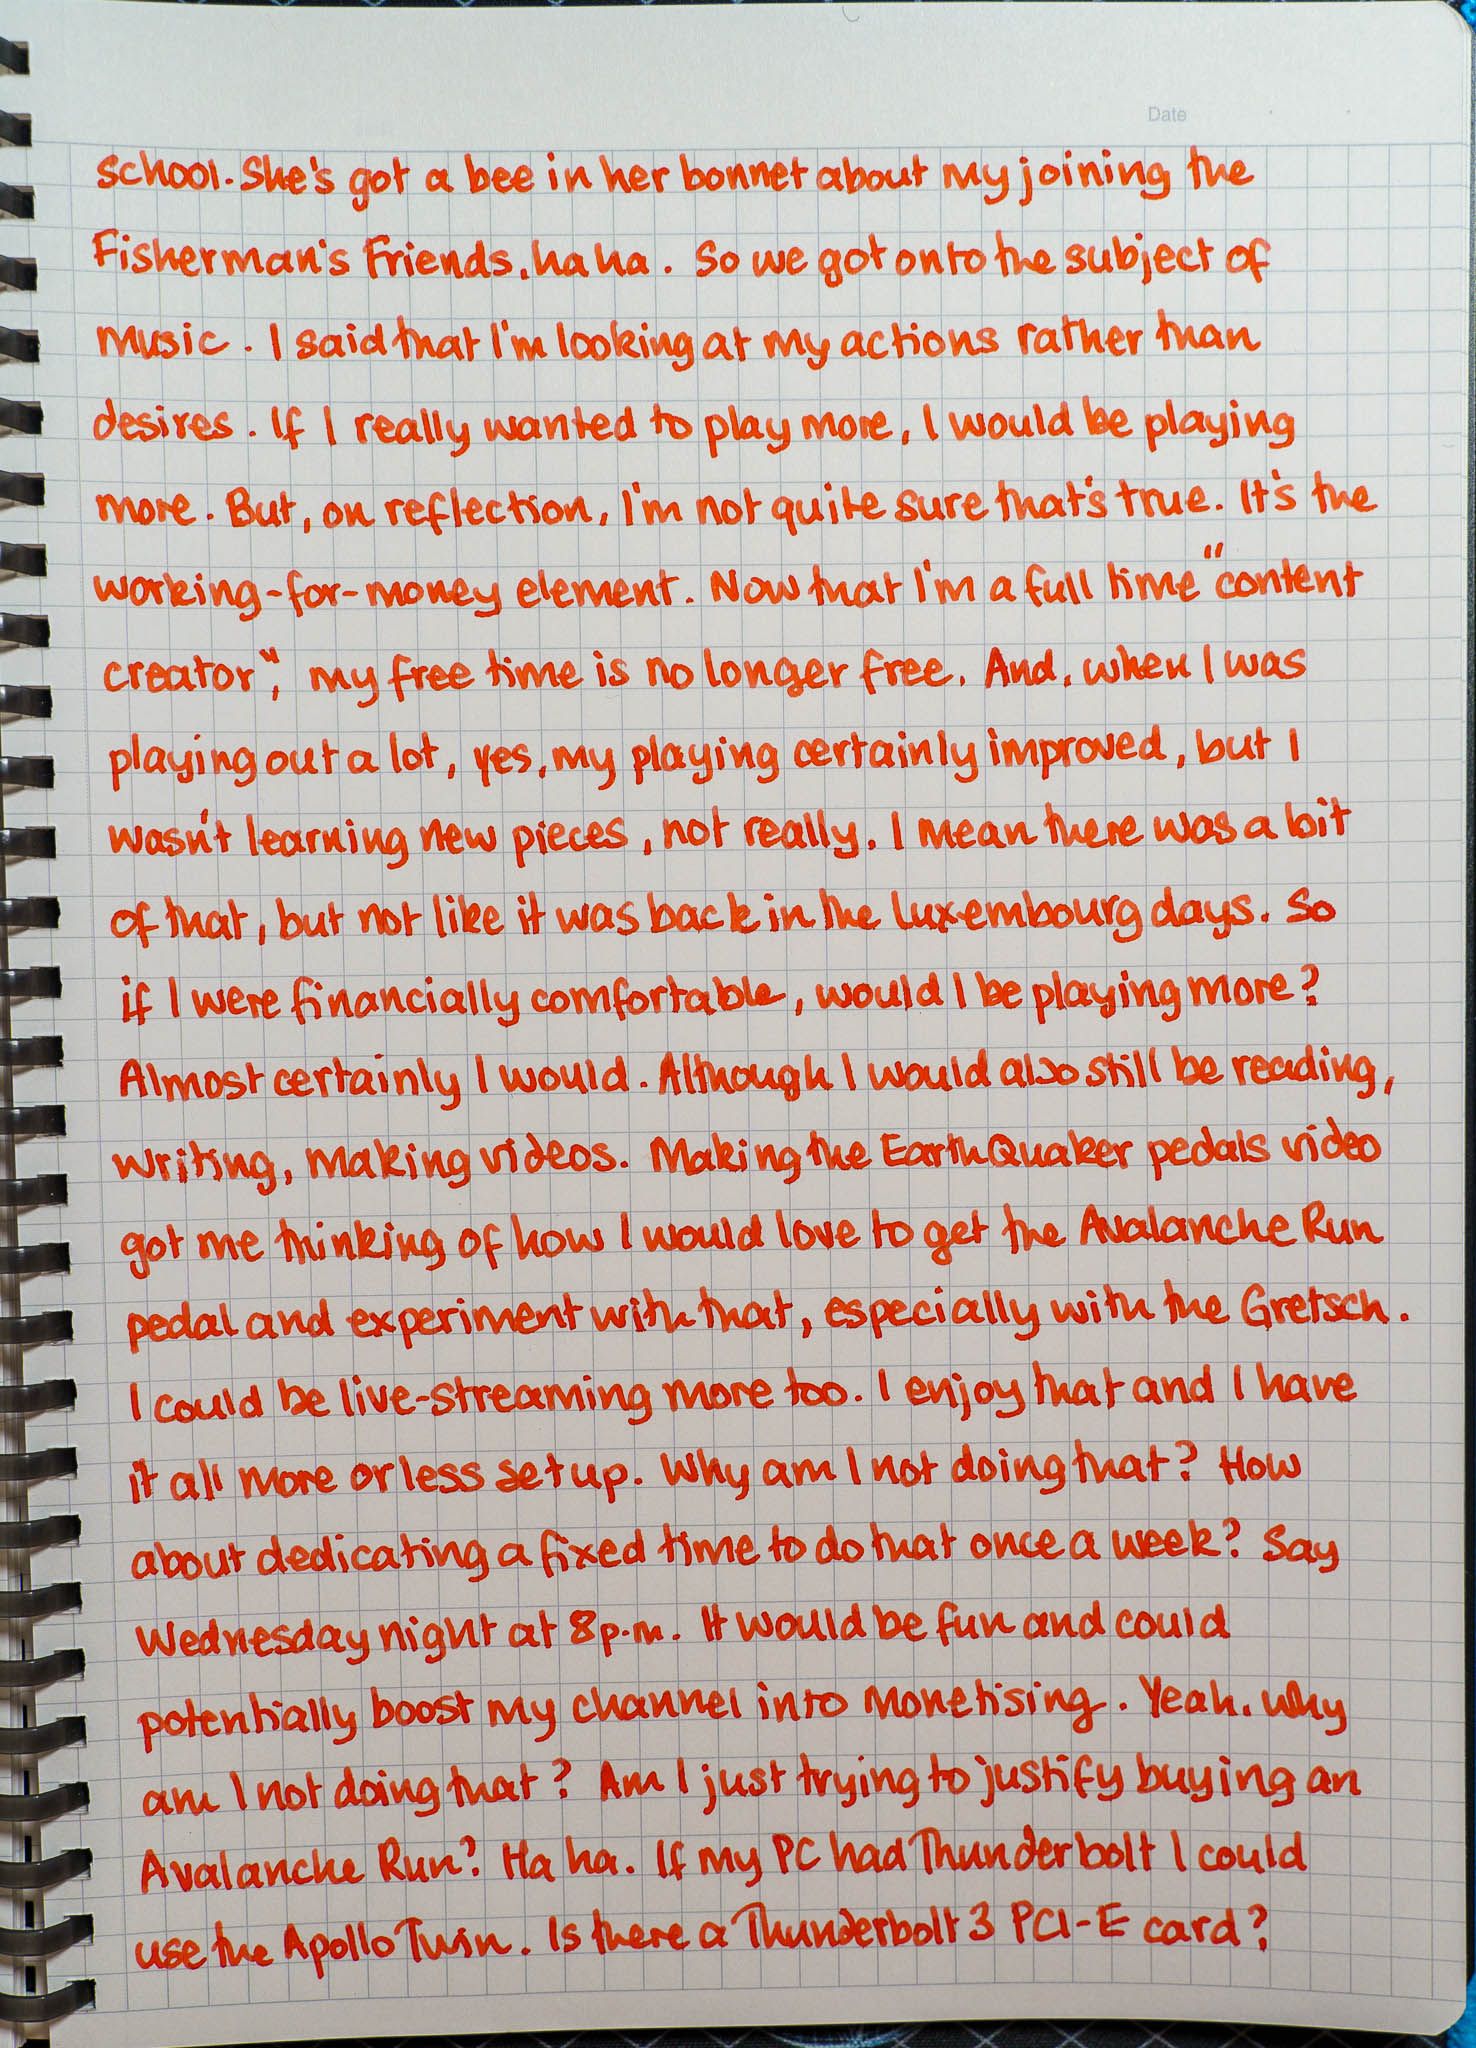 Date
school. She's got a bee in her bonnet about my joining the
Fisherman's Friends, ha ha. So we got onto the subject of
music. I said that I'm looking at my actions rather than
desires. If I really wanted to play more, I would be playing
more. But, on reflection, I'm not quite sure that's true. It's the
working-for-money element. Now that I'm a full time "content
creator", my free time is no longer free. And, when I was
playing out a lot, yes, my playing certainly improved, but I
wasn't learning new pieces, not really. I mean there was a bit
of that, but not like it was back in the Luxembourg days. So
if I were financially comfortable, would I be playing more?
Almost certainly I would. Although I would also still be reading,
writing, making videos. Making the EarthQuaker pedals video
got me thinking of how I would love to get the Avalanche Run
pedal and experiment with that, especially with the Gretsch.
I could be live-streaming more too. I enjoy that and I have
it all more or less set up. Why am I not doing that? How
about dedicating a fixed time to do that once a week? Say
Wednesday night at 8p.m. It would be fun and could
potentially boost my channel into monetising. Yeah, why
am I not doing that? Am I just trying to justify buying an
Avalanche Run? Ha ha. If my PC had Thunderbolt I could
use the Apollo Twin. Is there a Thunderbolt 3 PCI-E card?